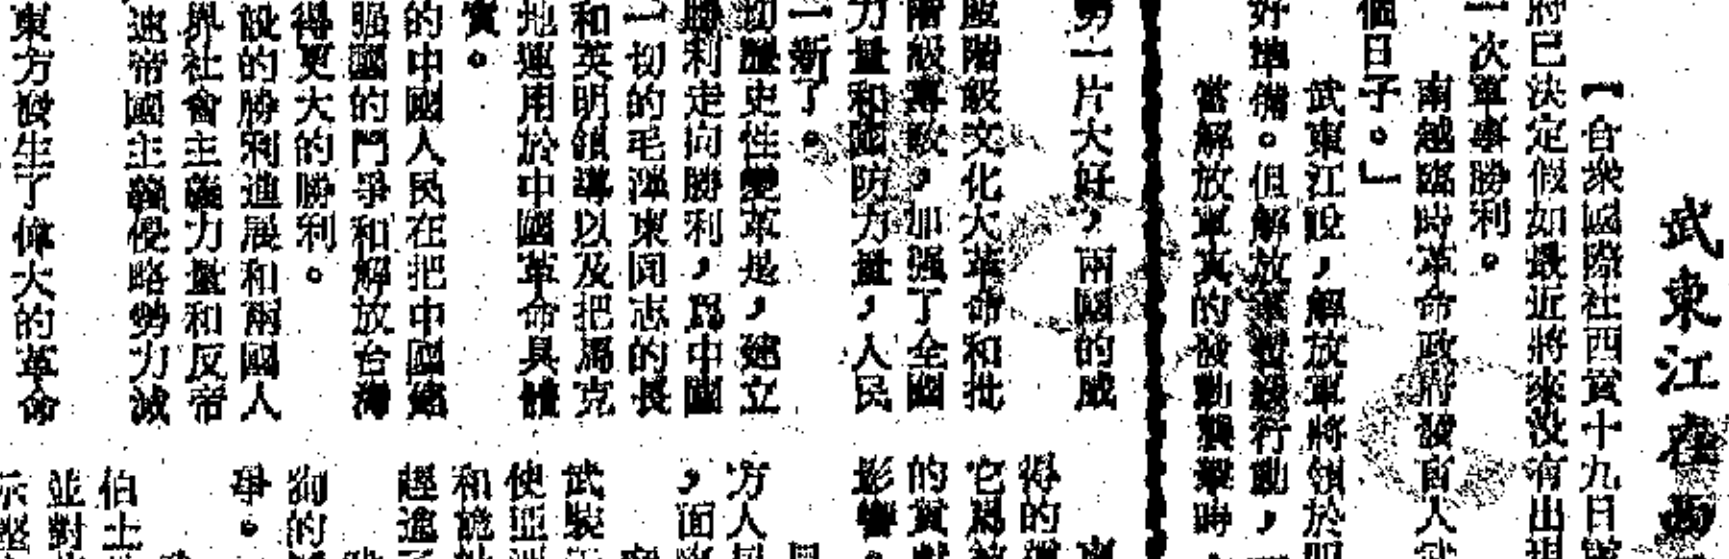 武東江在西
【合衆國際社西貢十九日
府已決定假如最近將來没有出現
一次軍事勝利。
南越臨時革命政府發言人武
個日子。」
武東江說，解放軍將領於
好準備。但解放軍暫緩行動，
當解放軍真的發動襲擊時，
勢一片大好，兩國的威
產階級文化大革命和批
階級專政，加强了全國
力量和國防力量，人民
一新了。
切歷史性變革是，建立
勝利走向勝利，爲中國
一切的毛澤東同志的長
和英明領導以及把馬克
地運用於中國革命具體
實。
的中國人民在把中國建
强國的鬥爭和解放台灣
得更大的勝利。
設的勝利進展和兩國人
界社會主義力量和反帝
速帝國主義侵略勢力減
東方發生了偉大的革命
得的
它爲
的貢獻
影響。
方人民
，面
武裝
使亞洲
和詭計
經進了
狗的
爭。
伯土
並對
示堅